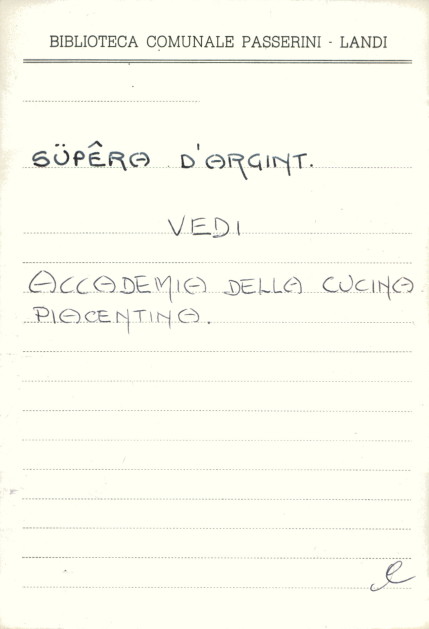 BIBLIOTECA COMUNALE PASSERINI - LANDI
SÜPÊRA D'ARGINT.
VEDI
ACCADEMIA DELLA CUCINA
PIACENTINA.
e